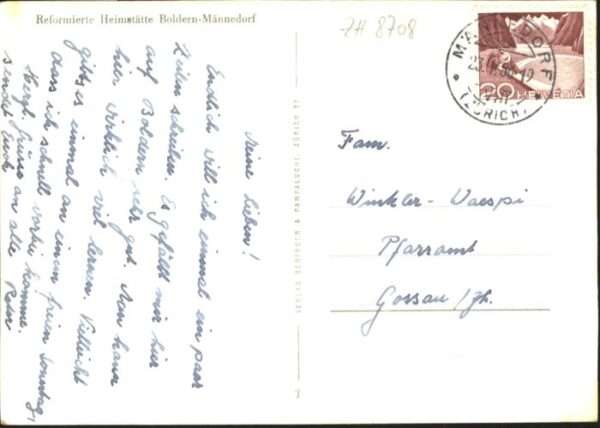 Reformierte Heimstätte Boldern-Männedorf
ZH 8708
Meine Lieben!
Endlich will ich einmal ein paar
Zeilen schreiben. Es gefällt mir hier
auf Boldern sehr gut. Man kann
hier wirklich viel lernen. Vielleicht
gibt es einmal an einem freien Sonntag,
dass ich schnell vorbei komme.
Herzl. Grüsse an alle
sendet Euch
VERLAG BEHRINGER & PAMPALUCHI, ZÜRICH
MÄNNEDORF
(ZÜRICH)
20 HELVETIA
Fam.
Winkler-Waespi
Pfarramt
Gossau/Zh.